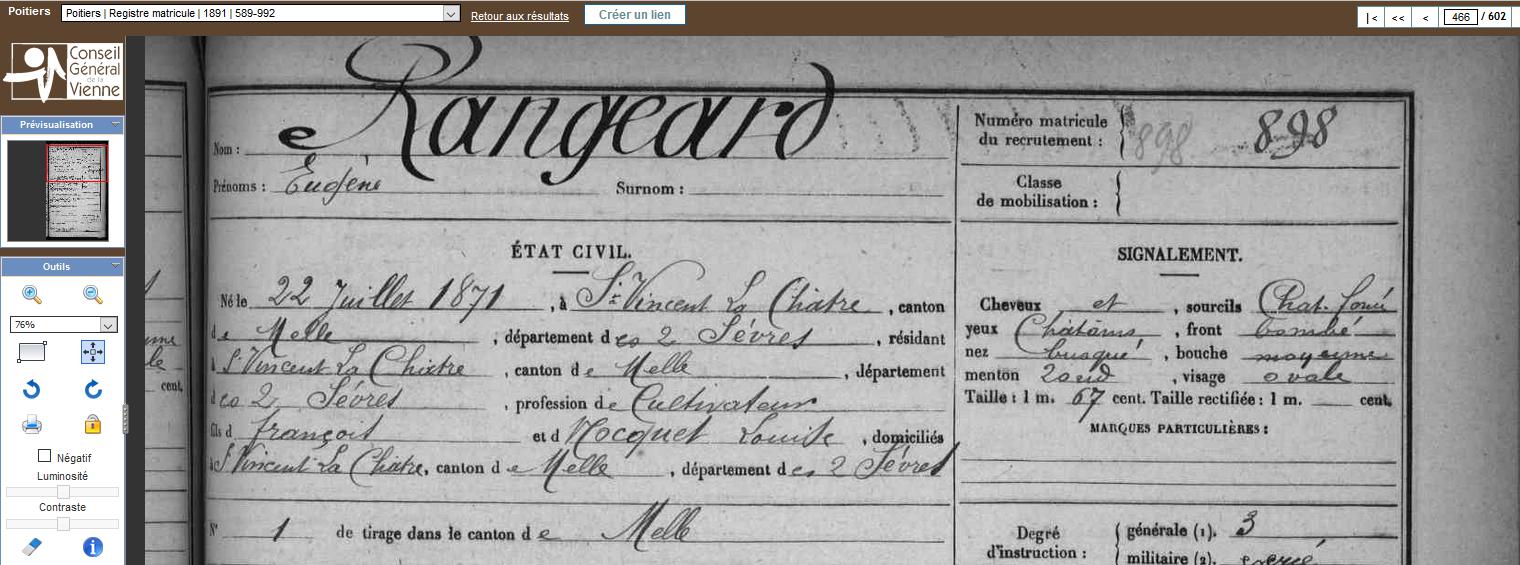 Poitiers
Poitiers | Registre matricule | 1891 | 589-992
Retour aux résultats
Créer un lien
|<
<<
<
466 / 602
Conseil
Général
de la
Vienne
Prévisualisation
Outils
76%
Négatif
Luminosité
Contraste
Nom : Rangeard
Prénoms : Eugène Surnom :
Numéro matricule
du recrutement : 898 898
Classe
de mobilisation :
ÉTAT CIVIL.
Né le 22 Juillet 1871, à St Vincent La Châtre, canton
de Melle, département des 2 Sévres, résidant
à St Vincent La Châtre, canton de Melle, département
des 2 Sévres, profession de Cultivateur
fils d françois et d Nocquet Louise, domiciliés
à St Vincent La Châtre, canton de Melle, département des 2 Sévres
N° 1 de tirage dans le canton de Melle
SIGNALEMENT.
Cheveux et, sourcils Chat. foncé
yeux Châtains, front bombé
nez busqué, bouche moyenne
menton rond, visage ovale
Taille : 1 m. 67 cent. Taille rectifiée : 1 m. cent.
MARQUES PARTICULIÈRES :
Degré
d'instruction :
générale (1). 3
militaire (2). exercé
cent.